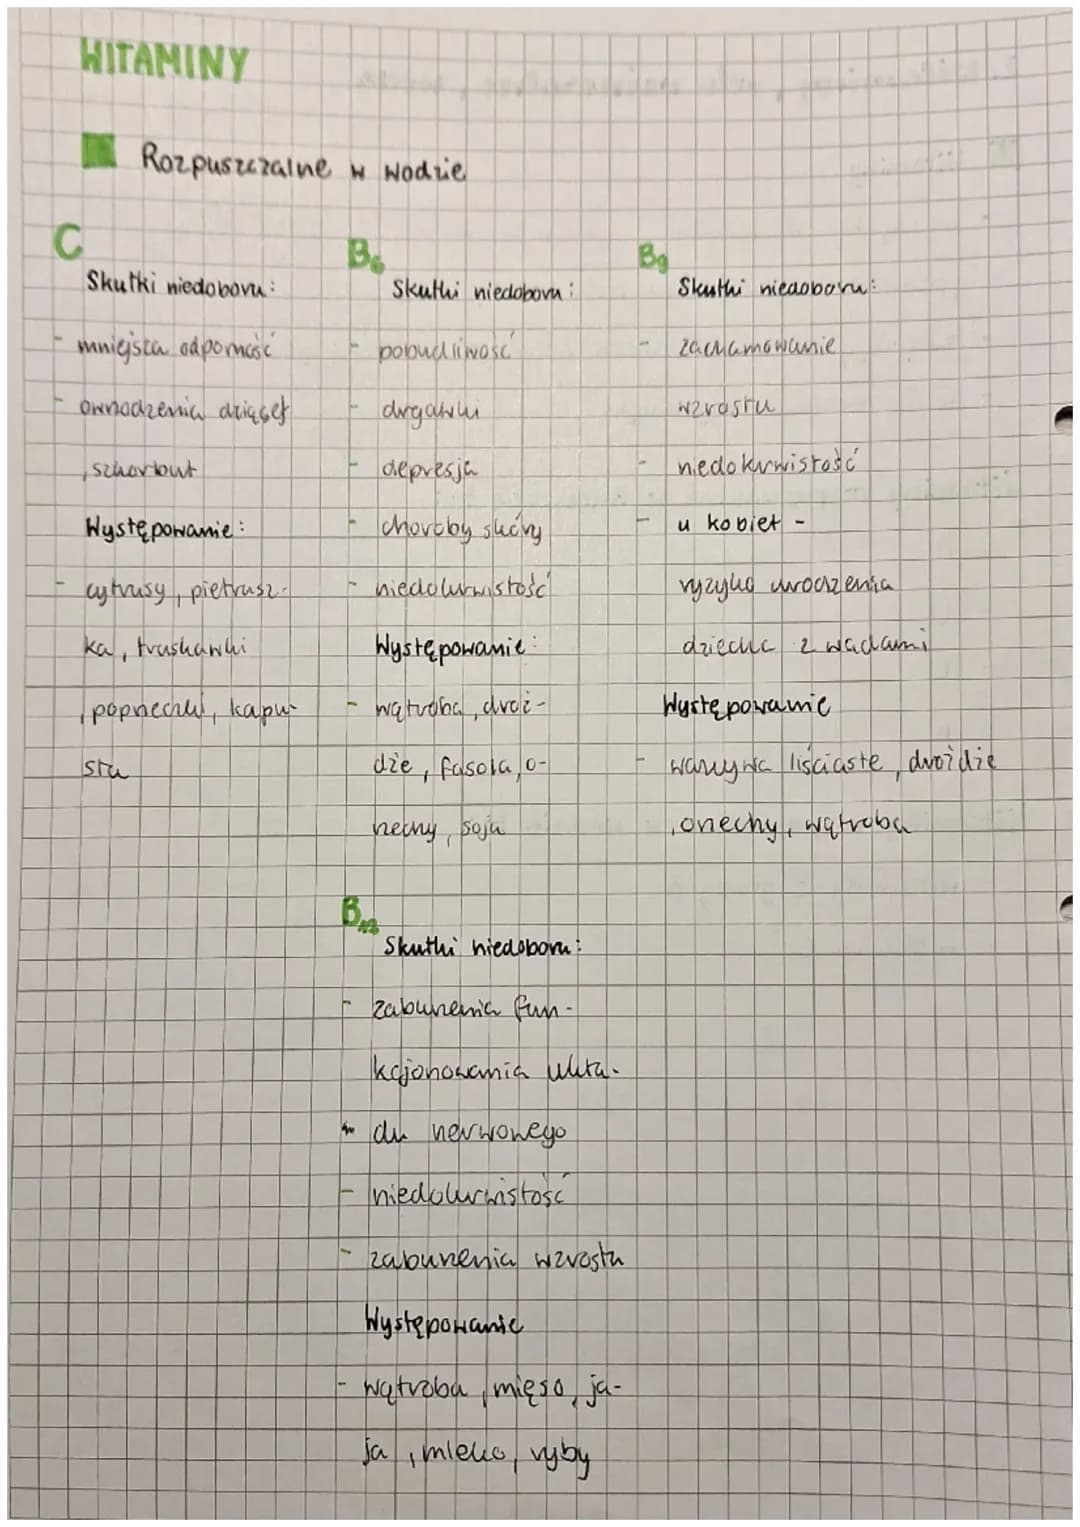 WITAMINY
Rozpuszczalne w wodzie
C
Skutki niedoboru:
- mniejsza odporność
- owrzodzenia dziąseł
, szkorbut
Występowanie:
- cytrusy, pietrusz-
ka, truskawki
, poprzeczki, kapu-
sta
B6
Skutki niedoboru:
- pobudliwość
- drgawki
- depresja
- choroby skóry
- niedokrwistość
Występowanie:
- wątroba, droż-
dże, fasola, o-
rzechy, soja
B9
Skutki niedoboru:
- zachamowanie
wzrostu
- niedokrwistość
- u kobiet -
ryzyko urodzenia
dziecka z wadami
Występowanie
- warzywa liściaste, drożdże
, orzechy, wątroba
B12
Skutki niedoboru:
- zaburzenia fun-
kcjonowania ukła-
du nerwowego
- niedokrwistość
- zaburzenia wzrostu
Występowanie
- wątroba, mięso, ja-
ja, mleko, ryby